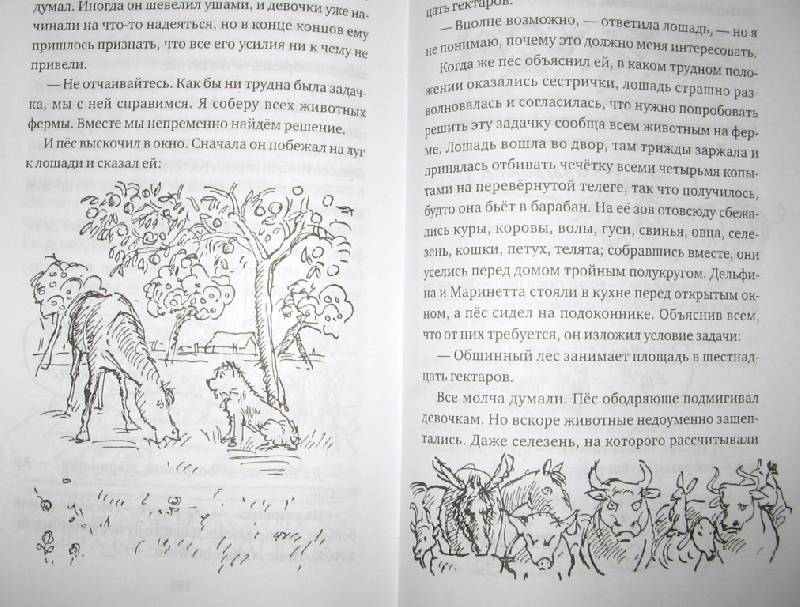 думал. Иногда он шевелил ушами, и девочки уже на-
чинали на что-то надеяться, но в конце концов ему
пришлось признать, что все его усилия ни к чему не
привели.
— Не отчаивайтесь. Как бы ни трудна была задач-
ка, мы с ней справимся. Я соберу всех животных
фермы. Вместе мы непременно найдём решение.
И пёс выскочил в окно. Сначала он побежал на луг
к лошади и сказал ей:
цать гектаров.
— Вполне возможно, — ответила лошадь, — но я
не понимаю, почему это должно меня интересовать.
Когда же пёс объяснил ей, в каком трудном поло-
жении оказались сестрички, лошадь страшно раз-
волновалась и согласилась, что нужно попробовать
решить эту задачку сообща всем животным на фер-
ме. Лошадь вошла во двор, там трижды заржала и
принялась отбивать чечётку всеми четырьмя копы-
тами на перевёрнутой телеге, так что получилось,
будто она бьёт в барабан. На её зов отовсюду сбежа-
лись куры, коровы, волы, гуси, свинья, овца, селе-
зень, кошки, петух, телята; собравшись вместе, они
уселись перед домом тройным полукругом. Дельфи-
на и Маринетта стояли в кухне перед открытым ок-
ном, а пёс сидел на подоконнике. Объяснив всем,
что от них требуется, он изложил условие задачи:
— Общинный лес занимает площадь в шестнад-
цать гектаров.
Все молча думали. Пёс ободряюще подмигивал
девочкам. Но вскоре животные недоуменно зашеп-
тались. Даже селезень, на которого рассчитывали